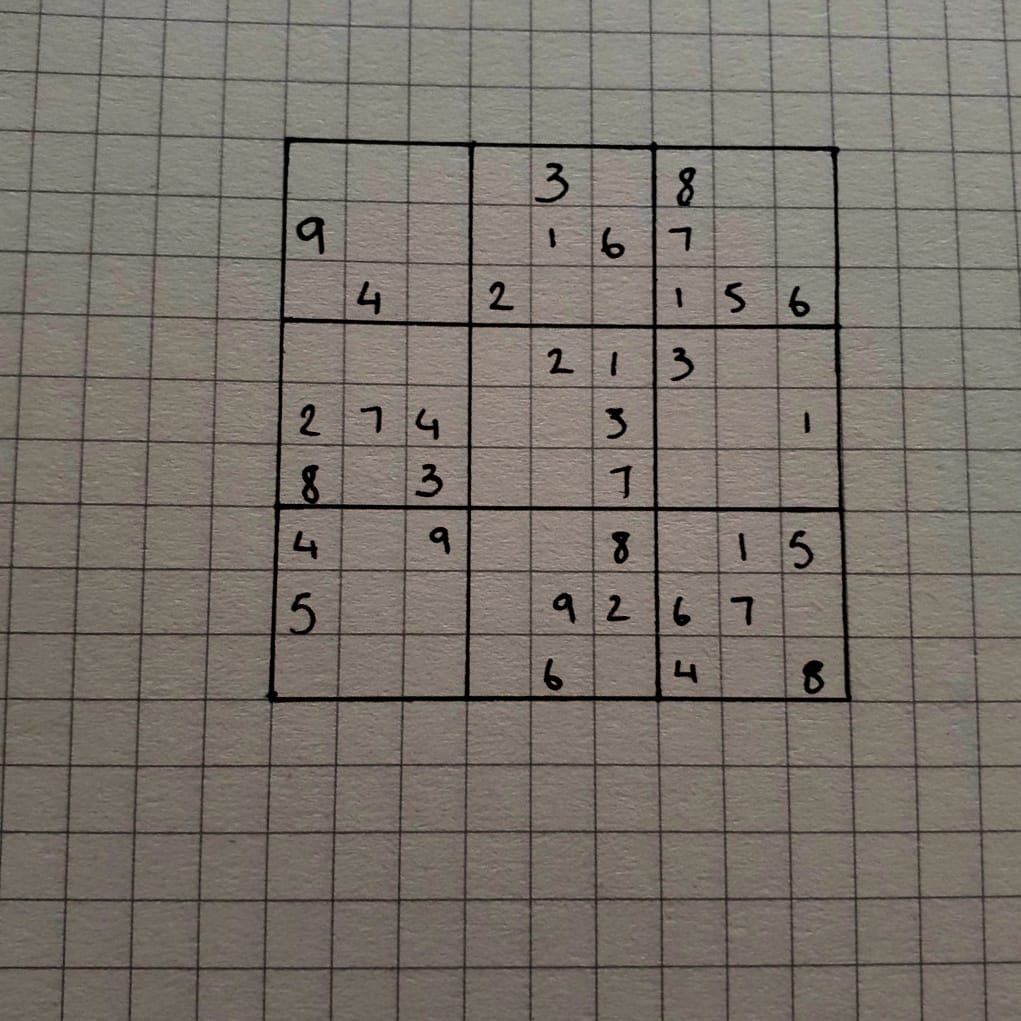 3 8
9 1 6 7
4 2 1 5 6
2 1 3
2 7 4 3 1
8 3 7
4 9 8 1 5
5 9 2 6 7
6 4 8